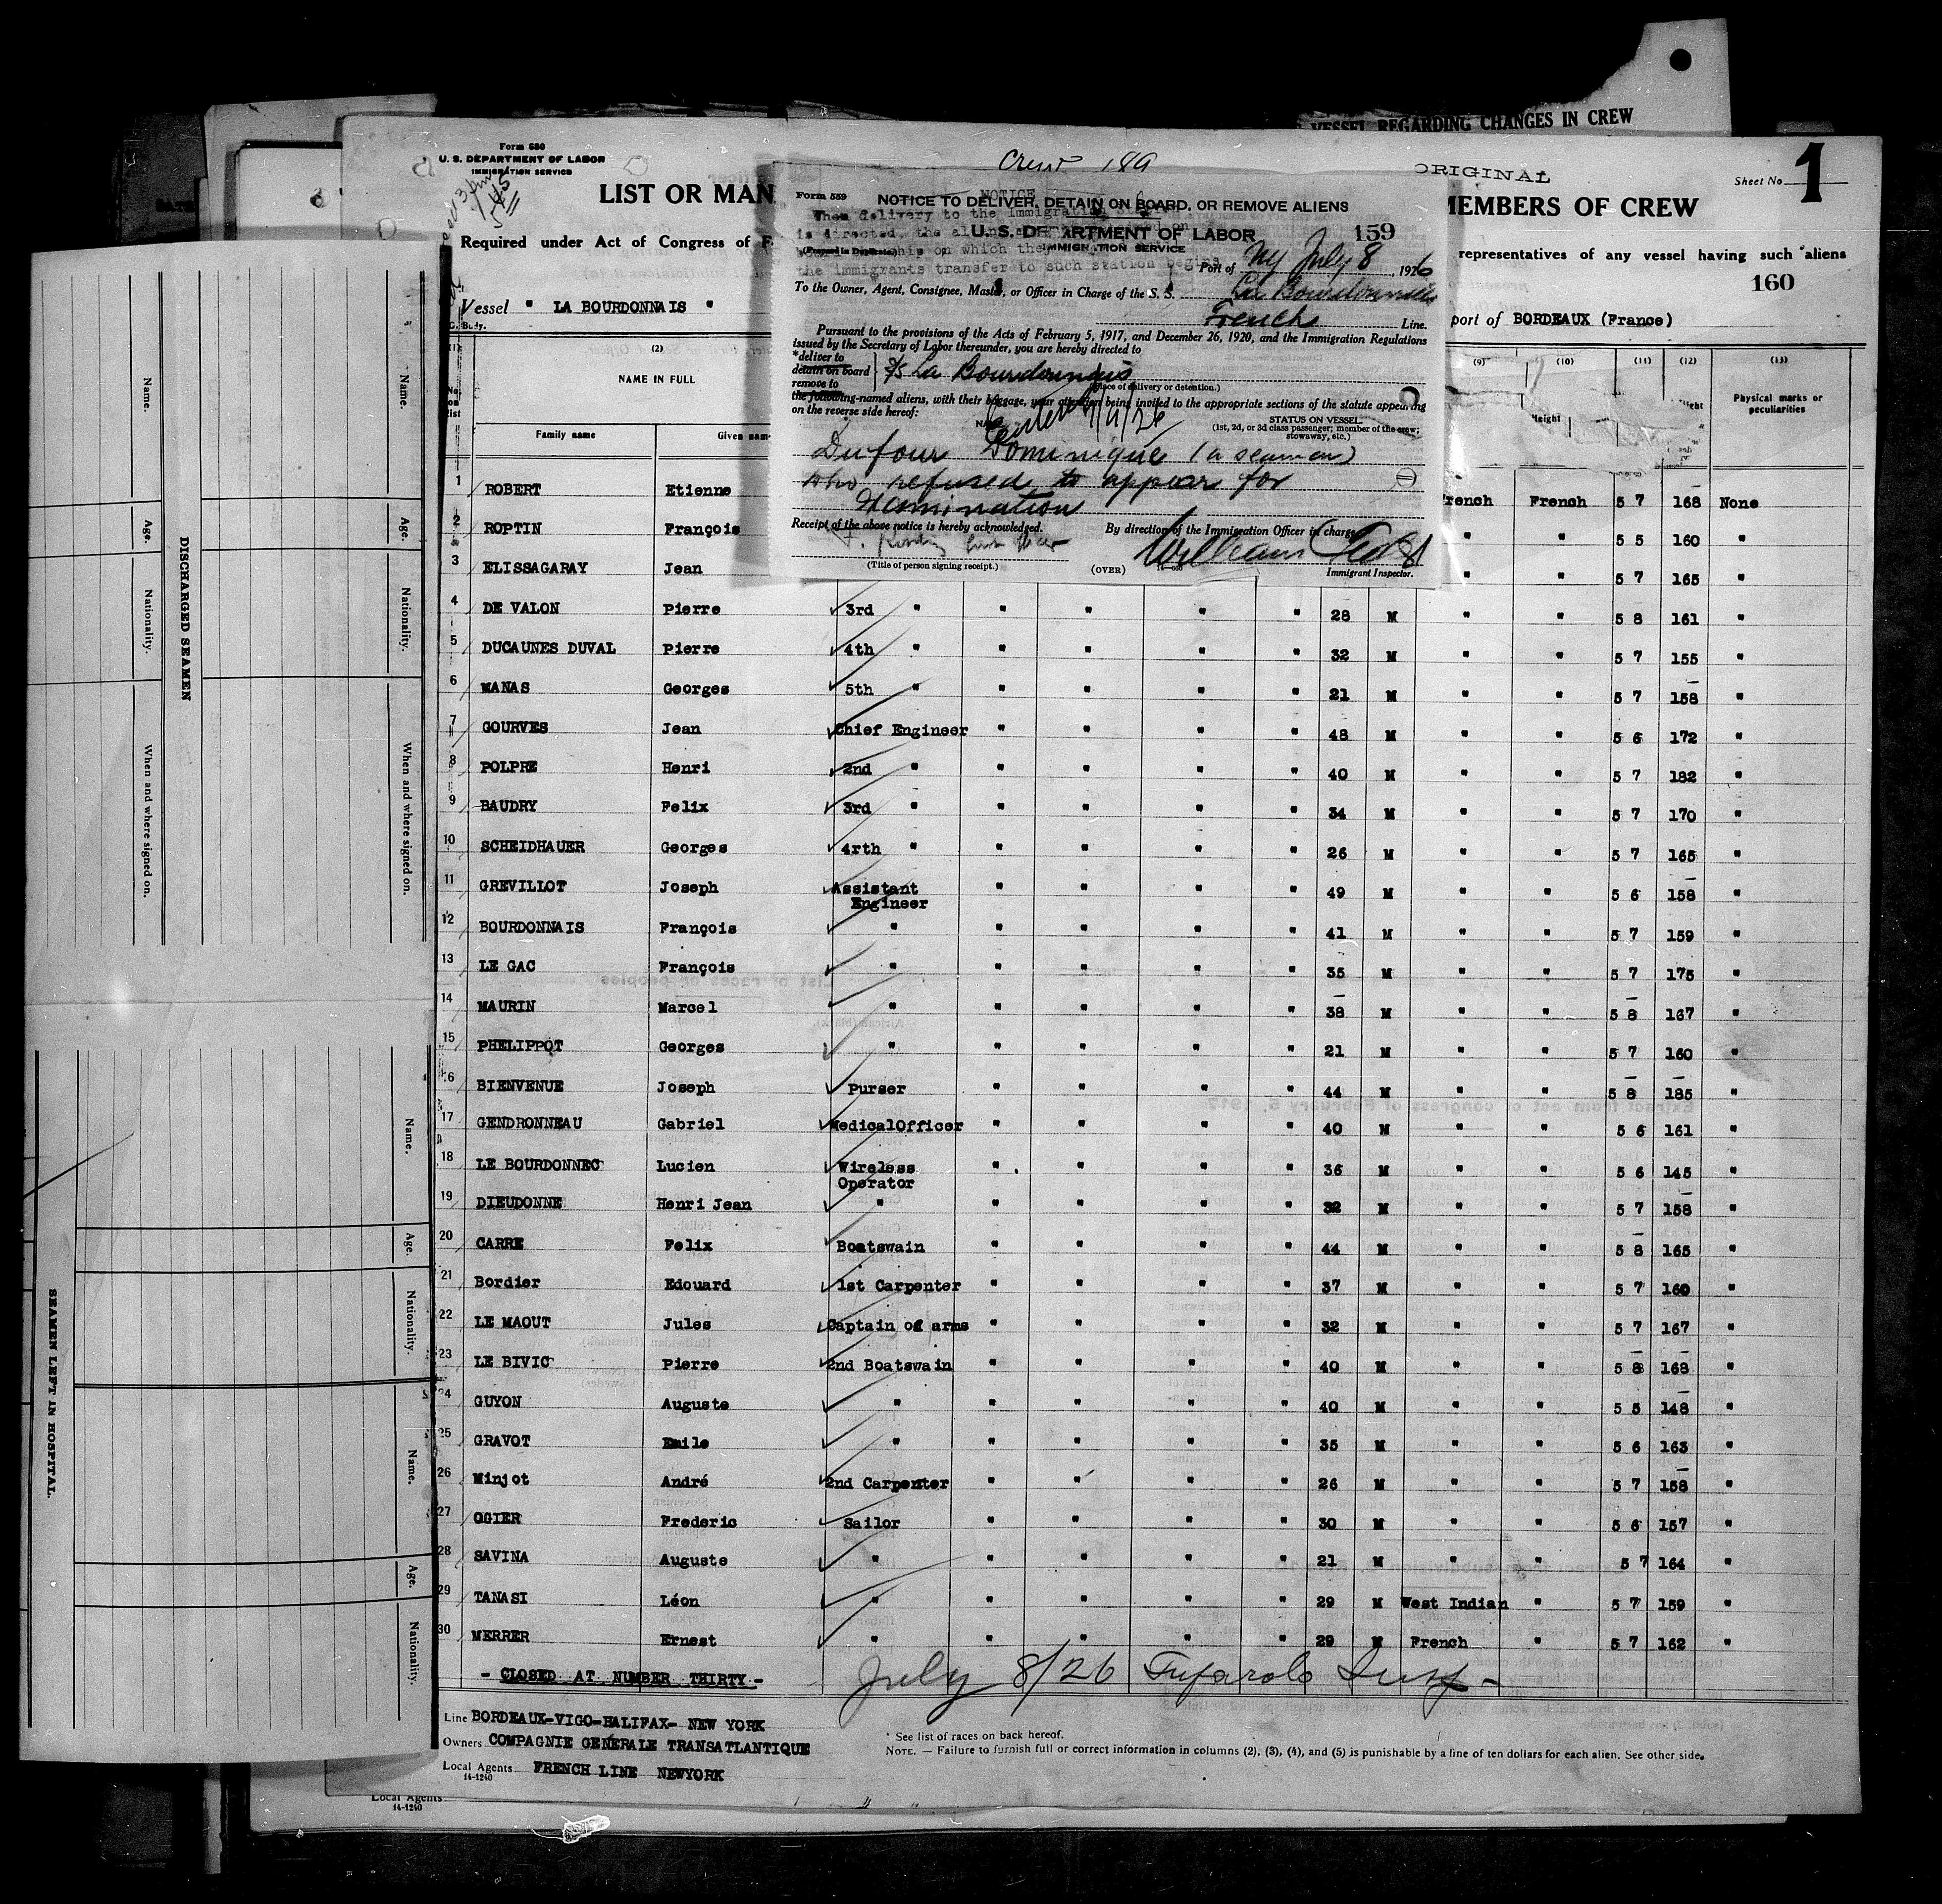 VESSEL REGARDING CHANGES IN CREW
Form 680
U. S. DEPARTMENT OF LABOR
IMMIGRATION SERVICE
Crew 189
ORIGINAL
Sheet No. 1
LIST OR MAN
MEMBERS OF CREW
Required under Act of Congress of F
representatives of any vessel having such aliens
160
Vessel " LA BOURDONNAIS "
port of BORDEAUX (France)
Form 559
NOTICE
NOTICE TO DELIVER, DETAIN ON BOARD, OR REMOVE ALIENS
When delivery to the Immigration
is directed, the aliens
U. S. DEPARTMENT OF LABOR
159
(Prepared in Duplicate)
IMMIGRATION SERVICE
the immigrants transfer to such station begins
Port of NY July 8, 1926
To the Owner, Agent, Consignee, Master, or Officer in Charge of the S. S. La Bourdonnais
French Line.
Pursuant to the provisions of the Acts of February 5, 1917, and December 26, 1920, and the Immigration Regulations
issued by the Secretary of Labor thereunder, you are hereby directed to
*deliver to
detain on board
remove to
S/S La Bourdonnais
(Place of delivery or detention.)
the following-named aliens, with their baggage, your attention being invited to the appropriate sections of the statute appearing
on the reverse side hereof:
STATUS ON VESSEL
(1st, 2d, or 3d class passenger; member of the crew;
stowaway, etc.)
Dufour Dominique (a seaman)
who refused to appear for
Examination
Receipt of the above notice is hereby acknowledged.
By direction of the Immigration Officer in charge.
William
(Title of person signing receipt.)
(OVER)
Immigrant Inspector.
(1) (2) (9) (10) (11) (12) (13)
No. on list
NAME IN FULL
Height
Physical marks or
peculiarities
Family name Given nam
1 ROBERT Etienne French French 5 7 168 None
2 ROPTIN François " " 5 5 160 "
3 ELISSAGARAY Jean " " 5 7 165 "
4 DE VALON Pierre 3rd " " " " " 28 M " " 5 8 161 "
5 DUCAUNES DUVAL Pierre 4th " " " " " 32 M " " 5 7 155 "
6 MANAS Georges 5th " " " " " 21 M " " 5 7 158 "
7 GOURVES Jean Chief Engineer " " " " 48 M " " 5 6 172 "
8 POLPRE Henri 2nd " " " " " 40 M " " 5 7 182 "
9 BAUDRY Felix 3rd " " " " " 34 M " " 5 7 170 "
10 SCHEIDHAUER Georges 4rth " " " " " 26 M " " 5 7 165 "
11 GREVILLOT Joseph Assistant Engineer " " " " 49 M " " 5 6 158 "
12 BOURDONNAIS François " " " " " 41 M " " 5 7 159 "
13 LE GAC François " " " " " 35 M " " 5 7 175 "
14 MAURIN Marcel " " " " " 38 M " " 5 8 167 "
15 PHELIPPOT Georges " " " " " 21 M " " 5 7 160 "
16 BIENVENUE Joseph Purser " " " " 44 M " " 5 8 185 "
17 GENDRONNEAU Gabriel MedicalOfficer " " " " 40 M " " 5 6 161 "
18 LE BOURDONNEC Lucien Wireless Operator " " " " 36 M " " 5 6 145 "
19 DIEUDONNE Henri Jean " " " " " 32 M " " 5 7 158 "
20 CARRE Felix Boatswain " " " " 44 M " " 5 8 165 "
21 Bordier Edouard 1st Carpenter " " " " 37 M " " 5 7 160 "
22 LE MAOUT Jules Captain of arms " " " " 32 M " " 5 7 167 "
23 LE BIVIC Pierre 2nd Boatswain " " " " 40 M " " 5 8 168 "
24 GUYON Auguste " " " " " 40 M " " 5 5 148 "
25 GRAVOT Emile " " " " " 35 M " " 5 6 163 "
26 Minjot André 2nd Carpenter " " " " 26 M " " 5 7 158 "
27 OGIER Frederic Sailor " " " " 30 M " " 5 6 157 "
28 SAVINA Auguste " " " " " 21 M " " 5 7 164 "
29 TANASI Léon " " " " " 29 M West Indian " 5 7 159 "
30 MERRER Ernest " " " " " 29 M French " 5 7 162 "
- CLOSED AT NUMBER THIRTY -
July 8/26
Line BORDEAUX-VIGO-HALIFAX- NEW YORK
Owners COMPAGNIE GENERALE TRANSATLANTIQUE
Local Agents FRENCH LINE NEWYORK
14-1240
* See list of races on back hereof.
NOTE. — Failure to furnish full or correct information in columns (2), (3), (4), and (5) is punishable by a fine of ten dollars for each alien. See other side.
Local Agents
14-1240
DISCHARGED SEAMEN
Name. Age. Nationality. When and where signed on.
Name. Age. Nationality. When and where signed on.
SEAMEN LEFT IN HOSPITAL.
Name. Age. Nationality.
Name. Age. Nationality.